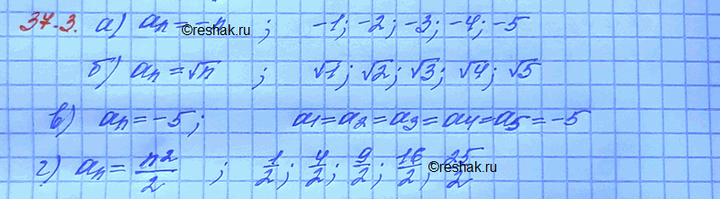 37.3. а) aₙ = -n ; -1; -2; -3; -4; -5
©reshak.ru
б) aₙ = √n ; √1; √2; √3; √4; √5
в) aₙ = -5; a₁=a₂=a₃=a₄=a₅=-5
г) aₙ = n²/2 ; 1/2; 4/2; 9/2; 16/2; 25/2
©reshak.ru